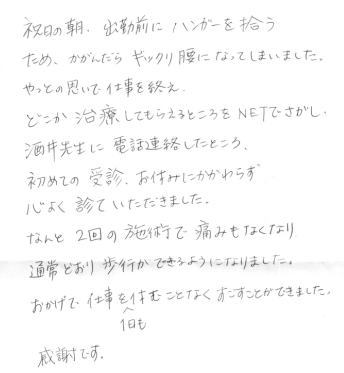 祝日の朝、出勤前に ハンガーを拾う
ため、かがんだら ギックリ腰になってしまいました。
やっとの思いで仕事を終え、
どこか 治療してもらえるところを NETでさがし、
酒井先生に 電話連絡したところ、
初めての 受診、お休みにかかわらず
心よく 診ていただきました。
なんと 2回の 施術で 痛みもなくなり
通常どおり 歩行ができるようになりました。
おかげで 仕事を休むことなく すごすことができました。
1日も
感謝です。